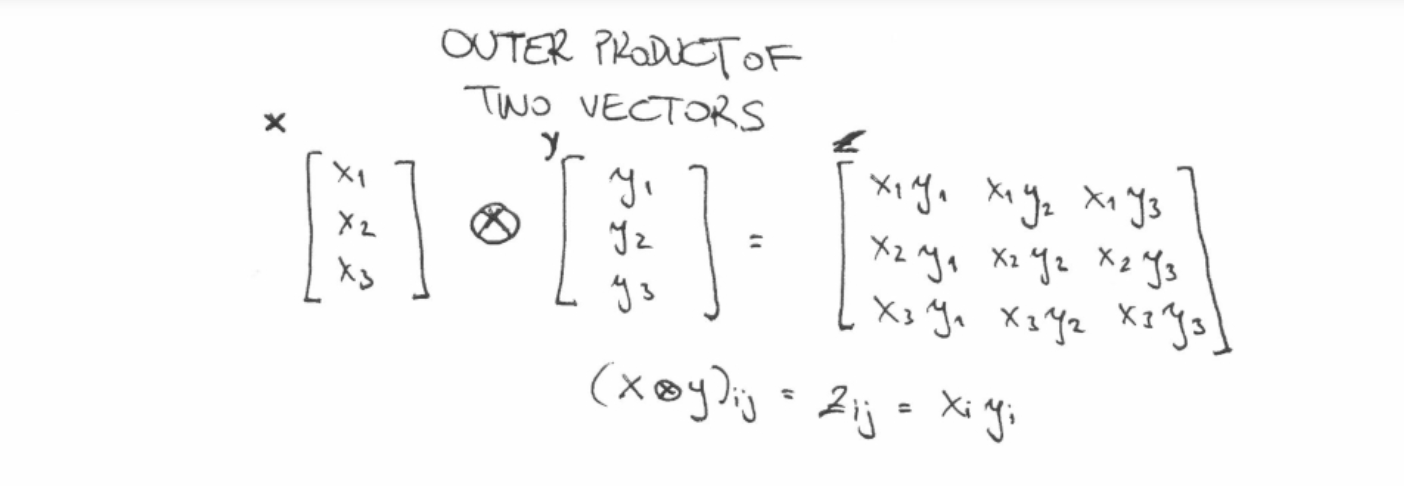 OUTER PRODUCT OF
TWO VECTORS
x y z
[ x₁ ] ⊗ [ y₁ ] = [ x₁y₁ x₁y₂ x₁y₃ ]
[ x₂ ] [ y₂ ] [ x₂y₁ x₂y₂ x₂y₃ ]
[ x₃ ] [ y₃ ] [ x₃y₁ x₃y₂ x₃y₃ ]
(x⊗y)ᵢⱼ = zᵢⱼ = xᵢ yᵢ